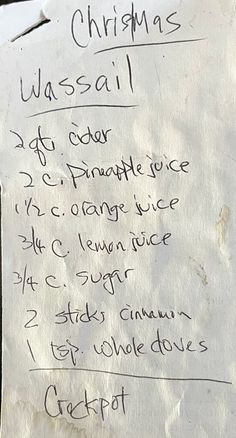 Christmas
Wassail
2 qts cider
2 c. pineapple juice
1 1/2 c. orange juice
3/4 c. lemon juice
3/4 c. sugar
2 sticks cinnamon
1 tsp. whole cloves
Crockpot